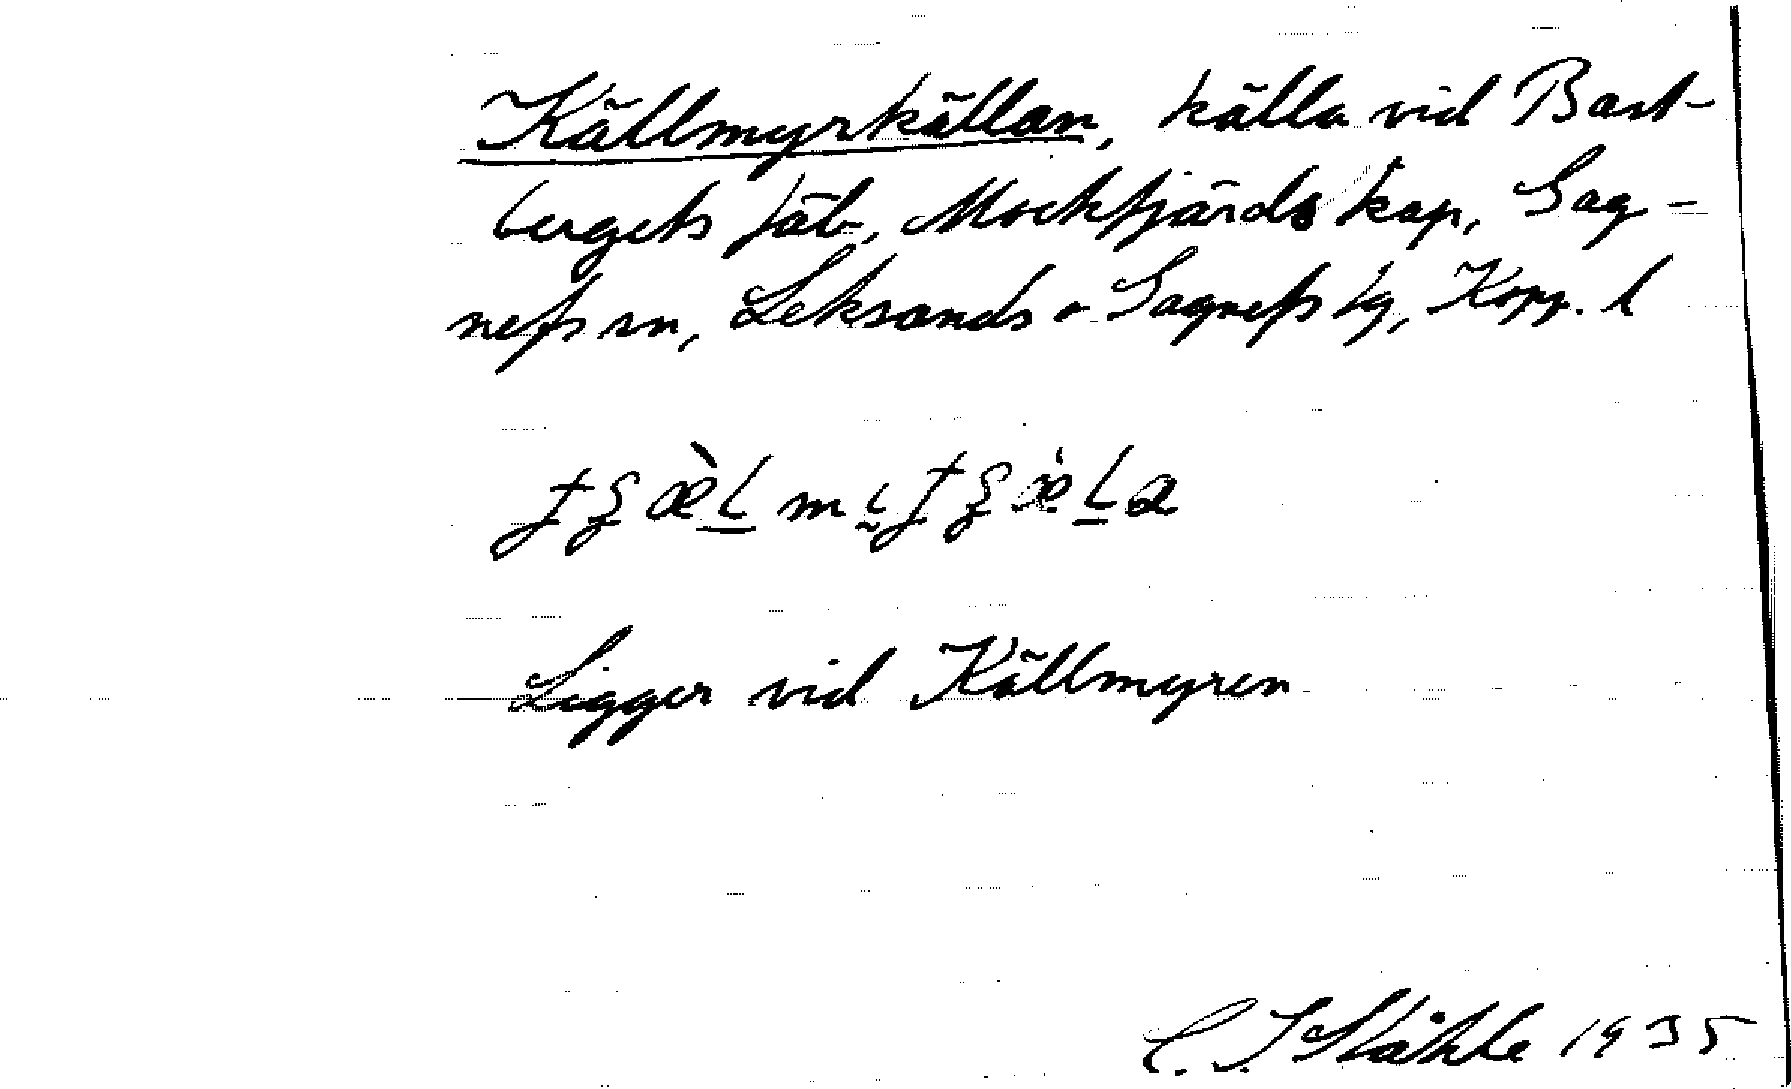 Källmyrkällan, källa vid Bast-
bergets fäb, Mockfjärds kap, Gag-
nefs sn, Leksands o Gagnefs tg, Kopp. l
Ligger vid Källmyren
C. I. Ståhle 1935